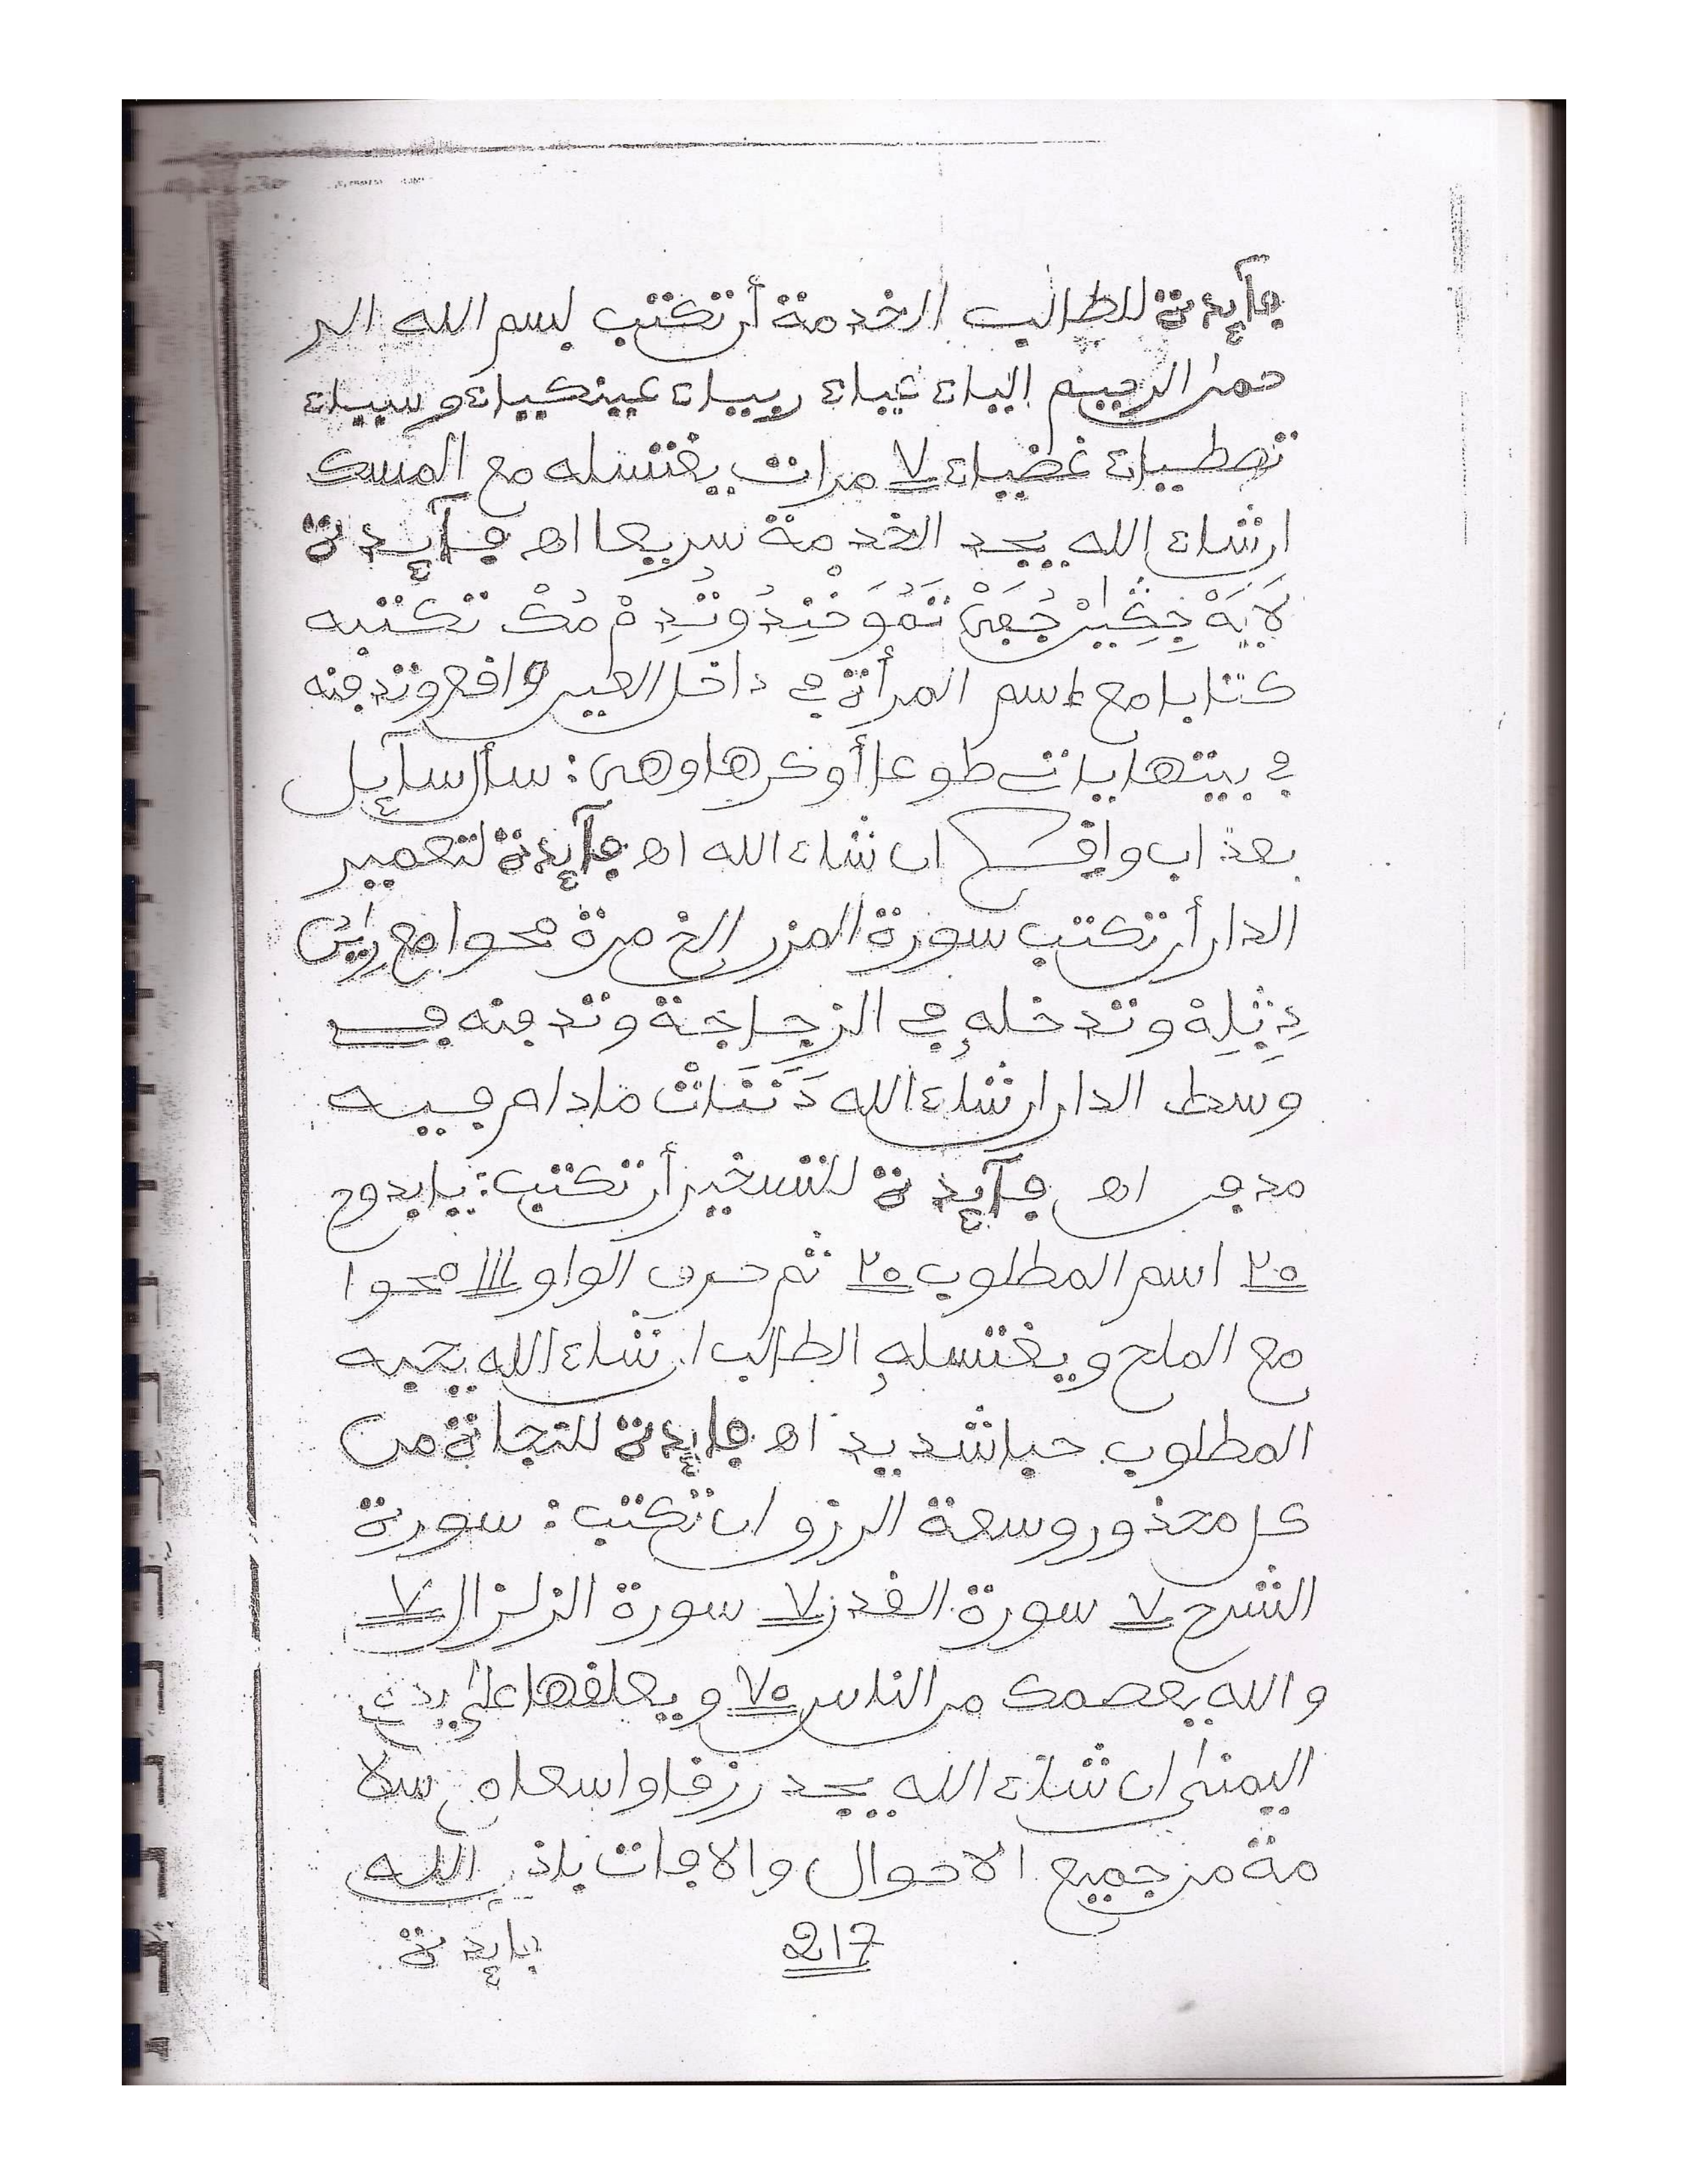 فآيدة للطالب الخدمة أن تكتب بسم الله الر
حمن الرحيم الياء غياء ربياء عينكبياء وسبياء
تصطبياء غضبياء ٧ مرات يغتسله مع المسك
ان شاء الله يجد الخدمة سريعا اه فآيدة
تكتبه
كتابا مع اسم المرأة في داخل العين وافع وتدفنه
في بيتها يات طوعا أو كرها وهي: سأل سآيل
بعذاب وافع ان شاء الله اه فآيدة لتعمير
الدار أن تكتب سورة المزر الخ مرة محوا مع
وتدخله في الزجاجة وتدفنه في
وسط الدار ان شاء الله مادام فيه
مدفن اه فآيدة للتسخير أن تكتب: يا بدوح
٢٠ اسم المطلوب ٢٠ ثم حرف الواو ١١١ محوا
مع الملح ويغتسله الطالب ان شاء الله يحبه
المطلوب حبا شديد اه فايدة للنجاة من
كل محذور وسعة الرزق ان تكتب: سورة
الشرح ٧ سورة القدر ٧ سورة الزلزال ٧
والله يعصمك من الناس ٧٠ ويعلقها على يده
اليمنى ان شاء الله يجد رزقا واسعا سلا
مة من جميع الاحوال والافات باذن الله
217
فايدة